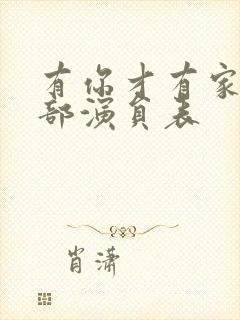 有你才有家
部演员表
肖潇